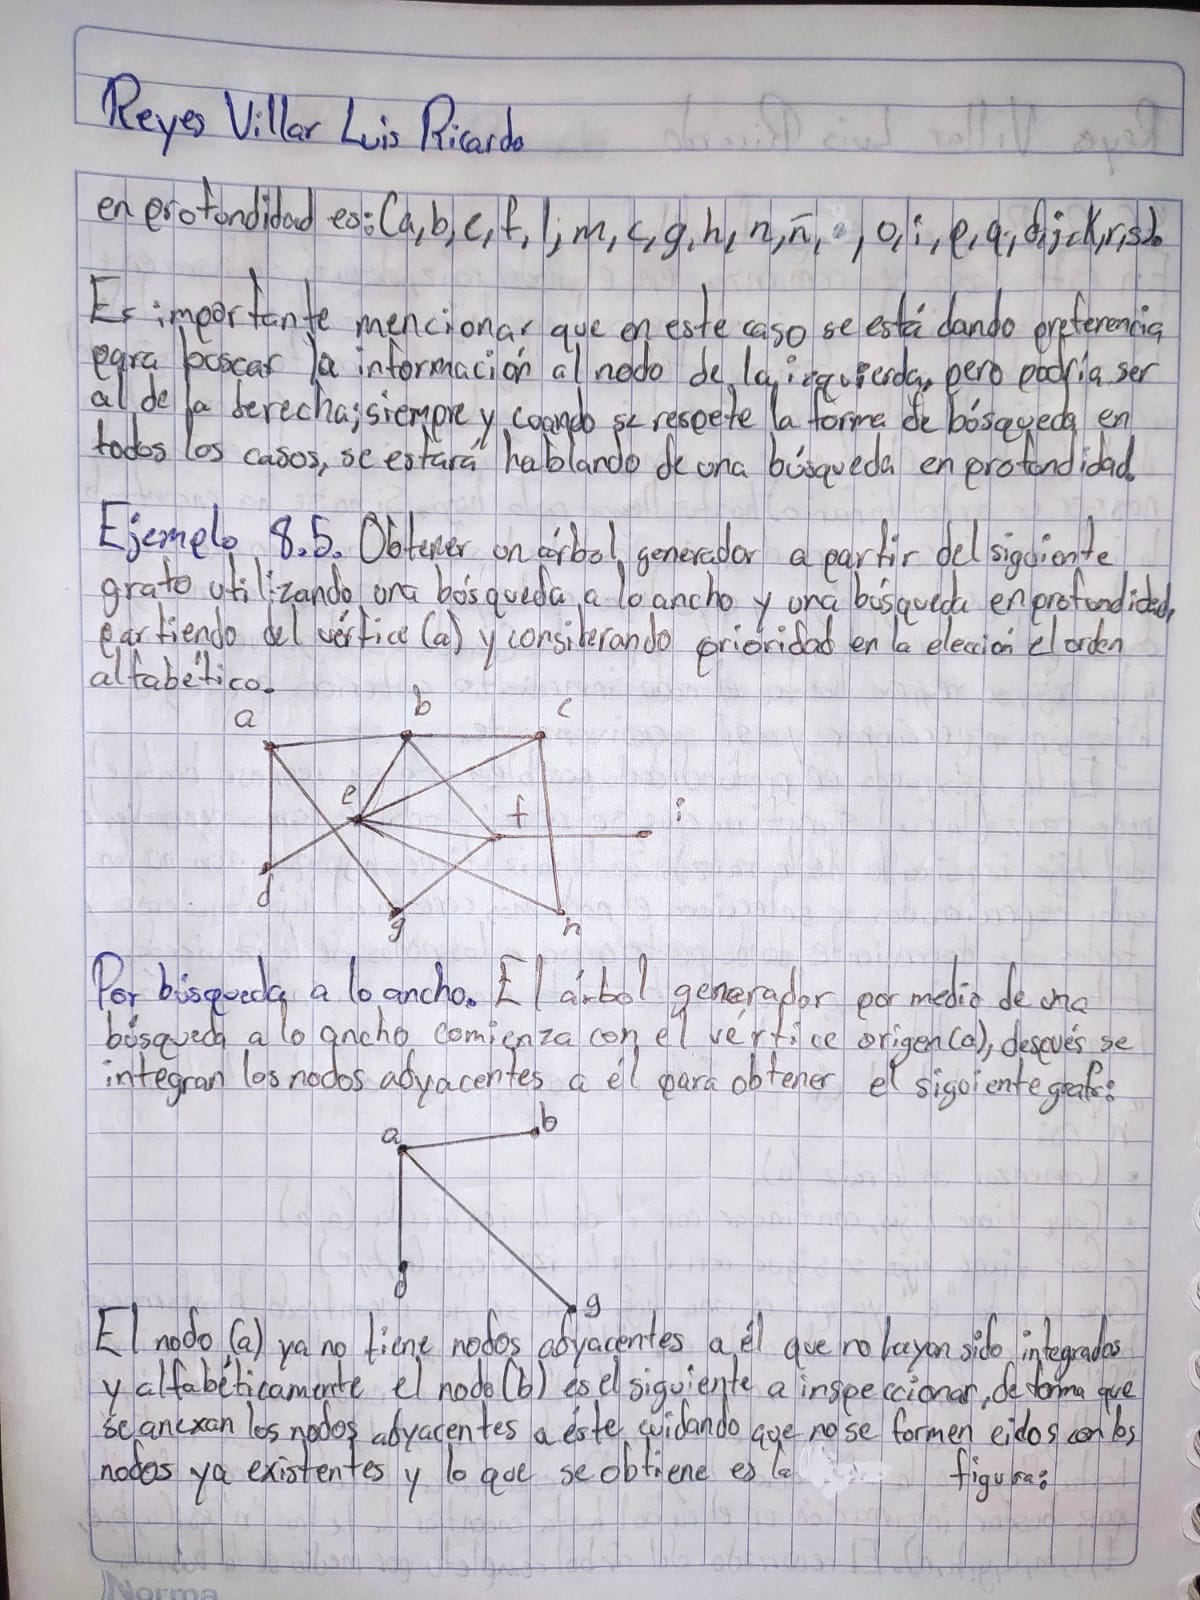 Reyes Villar Luis Ricardo
en profundidad es: (a, b, e, f, l, m, c, g, h, n, ñ, o, i, p, q, d, j, k, r, s).
Es importante mencionar que en este caso se está dando preferencia
para buscar la información al nodo de la izquierda, pero podría ser
al de la derecha; siempre y cuando se respete la forma de búsqueda en
todos los casos, se estará hablando de una búsqueda en profundidad.
Ejemplo 8.5. Obtener un árbol generador a partir del siguiente
grafo utilizando una búsqueda a lo ancho y una búsqueda en profundidad,
partiendo del vértice (a) y considerando prioridad en la elección el orden
alfabético.
a b c
e f i
d g h
Por búsqueda a lo ancho. El árbol generador por medio de una
búsqueda a lo ancho comienza con el vértice origen (a), después se
integran los nodos adyacentes a él para obtener el siguiente grafo:
a b
d g
El nodo (a) ya no tiene nodos adyacentes a él que no hayan sido integrados
y alfabéticamente el nodo (b) es el siguiente a inspeccionar, de forma que
se anexan los nodos adyacentes a éste cuidando que no se formen ciclos con los
nodos ya existentes y lo que se obtiene es la figura:
Norma